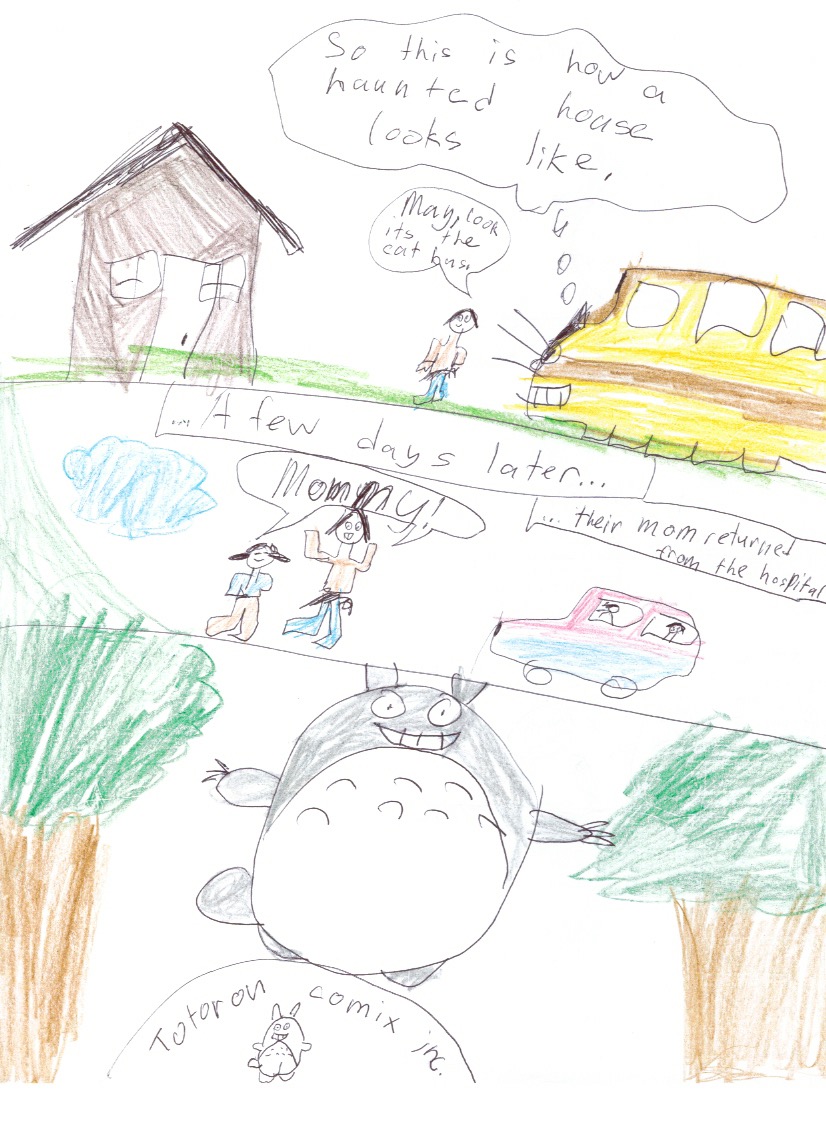 So this is how a
haunted house
looks like,
May, look
its the
cat bus.
... A few days later...
Mommy!
... their mom returned
from the hospital
Totoron comix inc.